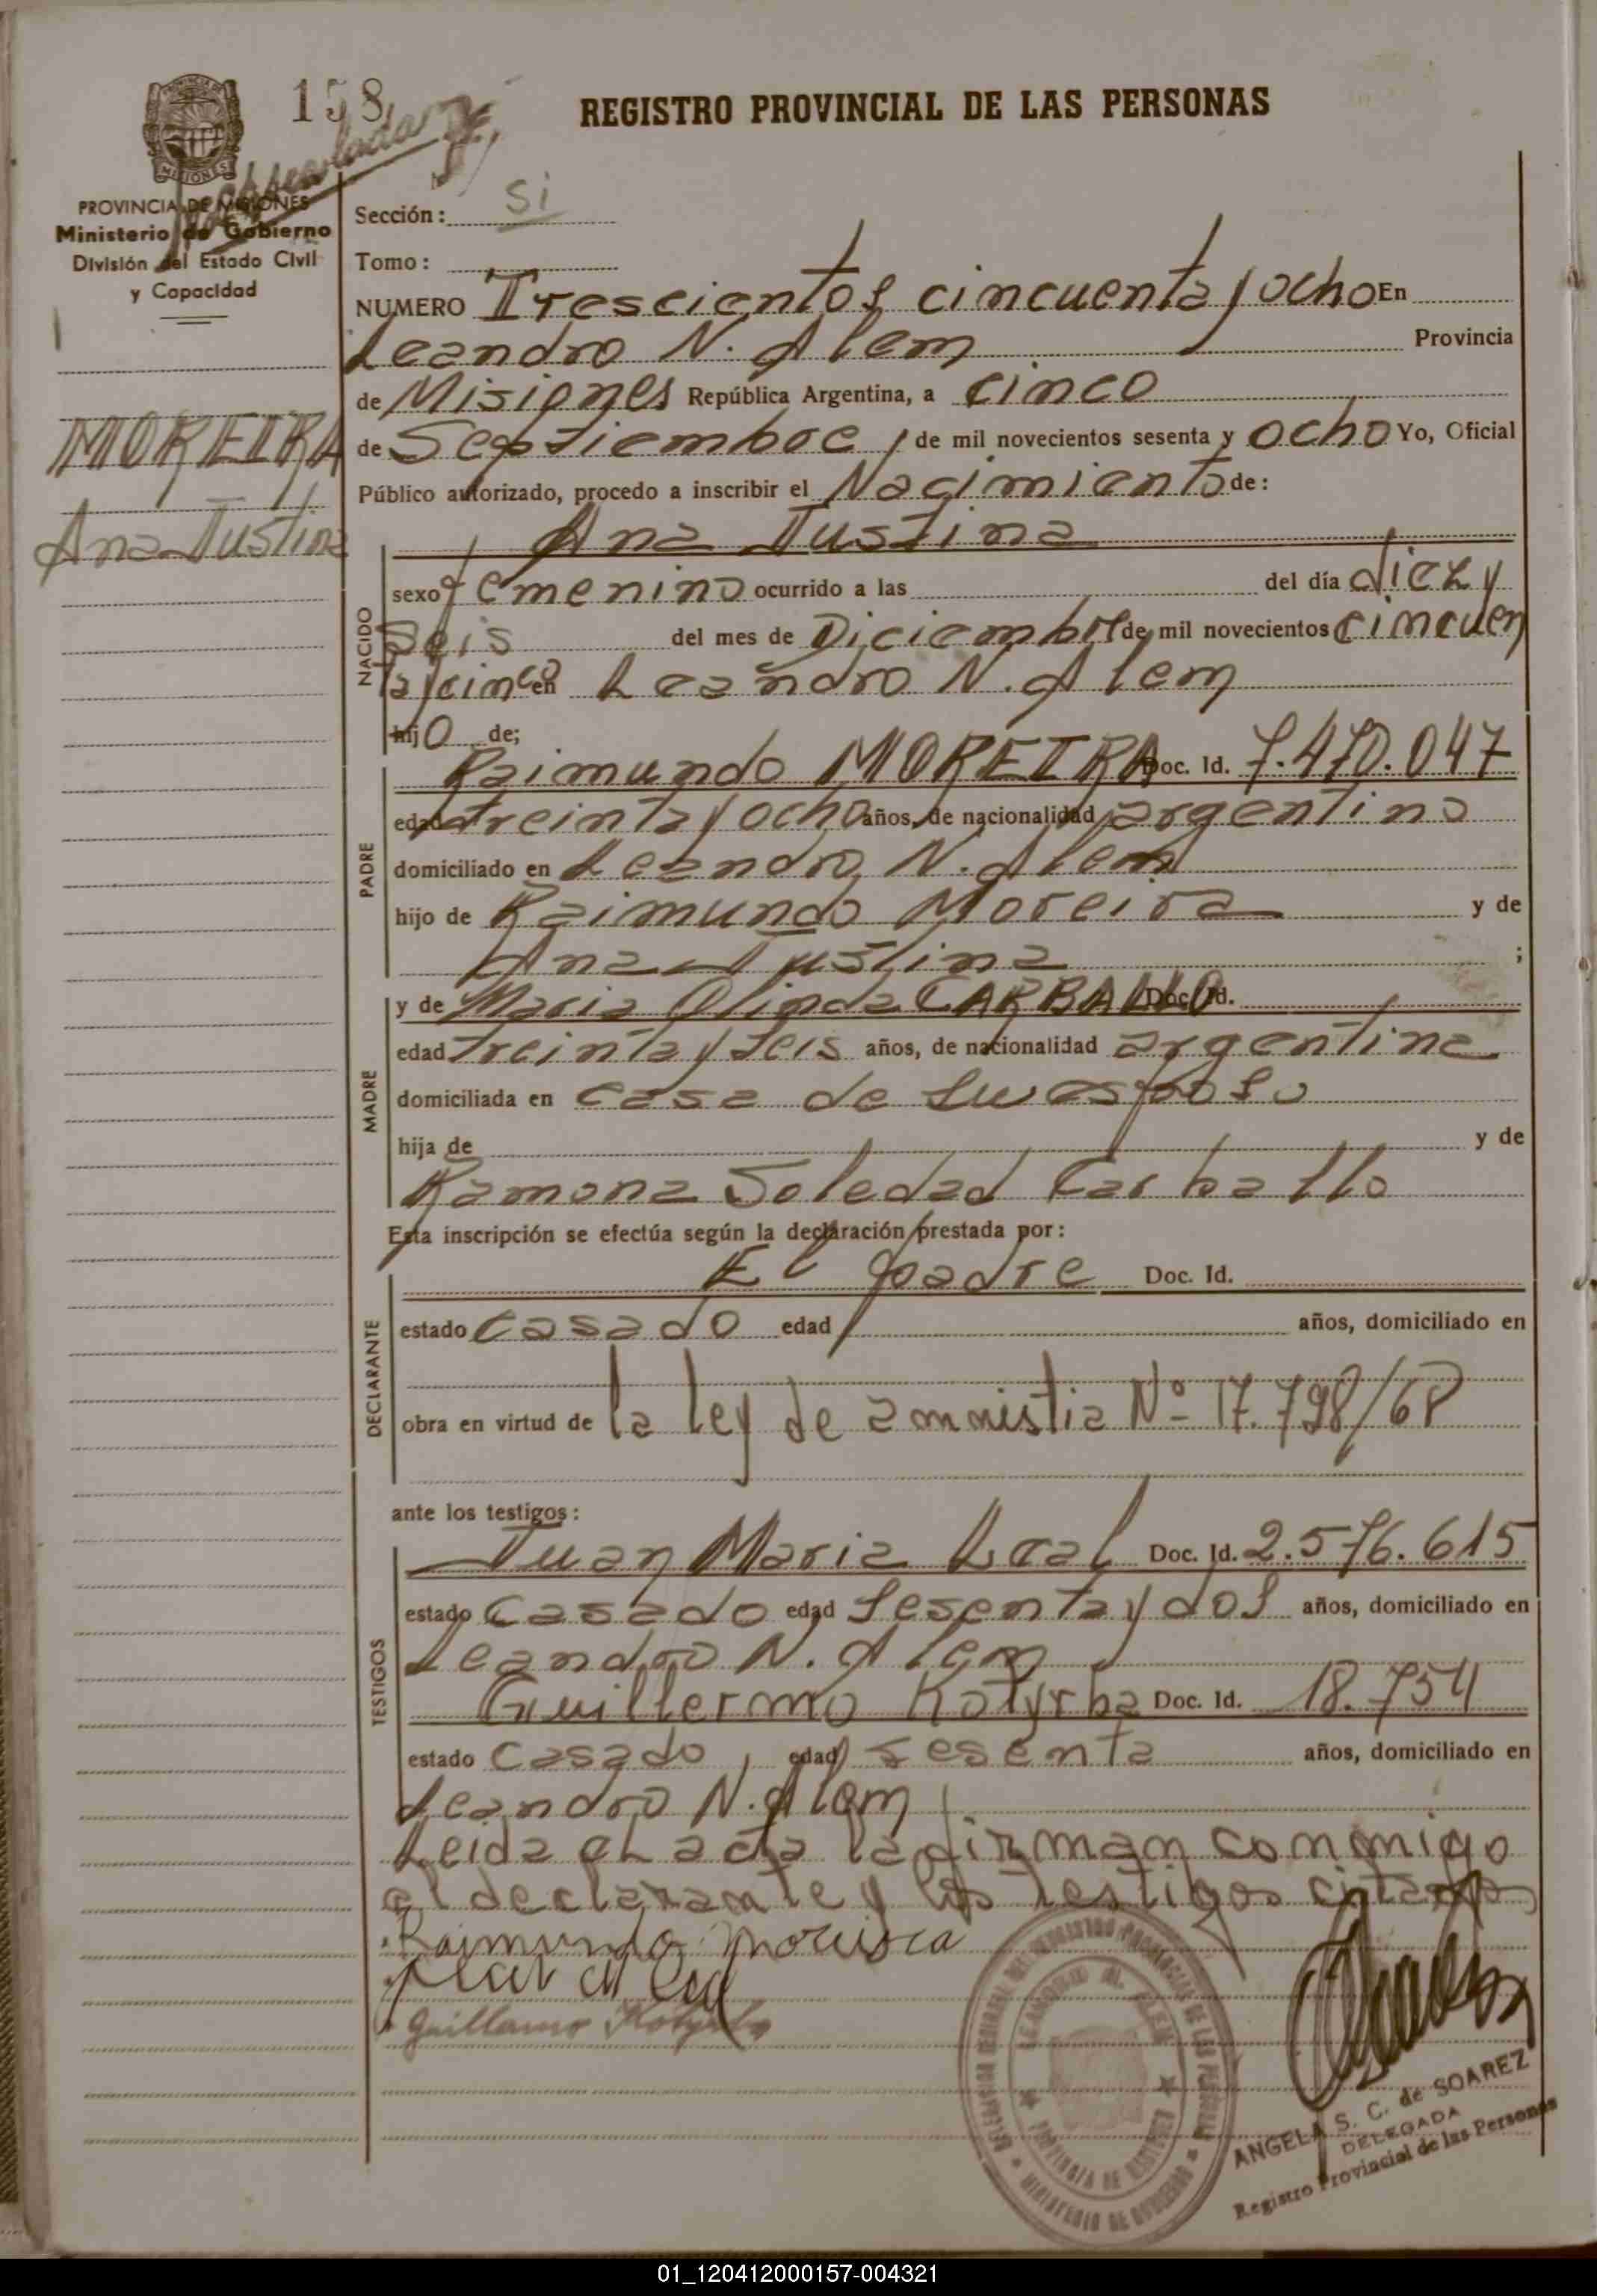 158
REGISTRO PROVINCIAL DE LAS PERSONAS
PROVINCIA DE MISIONES
Ministerio de Gobierno
División del Estado Civil
y Capacidad
MOREIRA
Ana Justina
Sección: Si
Tomo:
NUMERO Trescientos cincuenta y ocho En
Leandro N. Alem Provincia
de Misiones República Argentina, a cinco
de Septiembre de mil novecientos sesenta y ocho Yo, Oficial
Público autorizado, procedo a inscribir el Nacimiento de:
Ana Justina
NACIDO
sexo femenino ocurrido a las del día diez y
seis del mes de Diciembre de mil novecientos cincuen
ta y cinco en Leandro N. Alem
hijo de;
PADRE
Raimundo MOREIRA Doc. Id. 7.470.047
edad treinta y ocho años, de nacionalidad argentino
domiciliado en Leandro N. Alem
hijo de Raimundo Moreira y de
Ana Justina ;
MADRE
y de Maria Olinda CARBALLO Doc. Id.
edad treinta y seis años, de nacionalidad argentina
domiciliada en casa de su esposo
hija de y de
Ramona Soledad Carballo
Esta inscripción se efectúa según la declaración prestada por:
DECLARANTE
El padre Doc. Id.
estado casado edad años, domiciliado en
obra en virtud de la ley de amnistia Nº 17.798/68
ante los testigos:
TESTIGOS
Juan Maria Leal Doc. Id. 2.576.615
estado casado edad sesenta y dos años, domiciliado en
Leandro N. Alem
Guillermo Kotyrba Doc. Id. 18.754
estado casado, edad sesenta años, domiciliado en
Leandro N. Alem
Leida el acta la firman conmigo
el declarante y los testigos citados
Raimundo Moreira
Guillermo Kotyrba
LEANDRO N. ALEM
PROVINCIA DE MISIONES
MINISTERIO DE GOBIERNO
ANGELA S. C. de SOAREZ
DELEGADA
Registro Provincial de las Personas
01_120412000157-004321